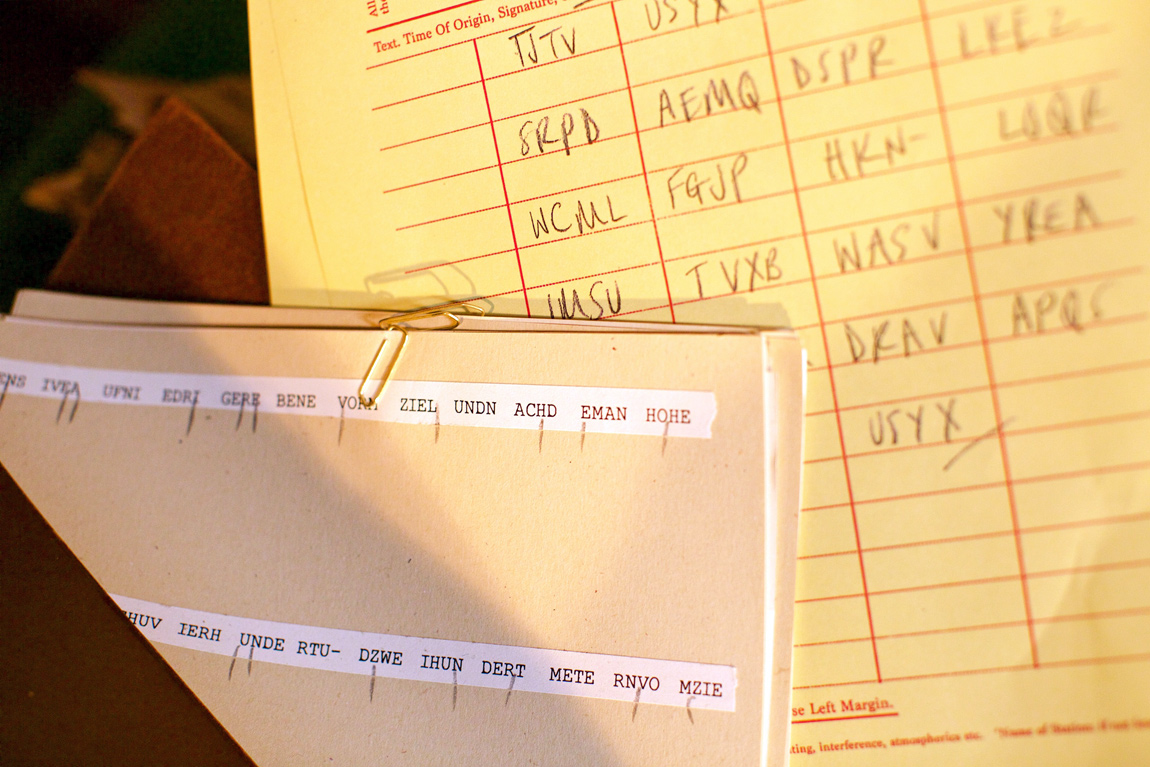 Text. Time Of Origin, Signature,
TJTV USYX
SRPD AEMQ DSPR LFEZ
WCML FGJP HKN- LOQR
IMSU TVXB WASV YREA
DRAV APQS
USYX
ENS IVEA UFNI EDRI GERE BENE VORM ZIEL UNDN ACHD EMAN HOHE
HUV IERH UNDE RTU- DZWE IHUN DERT METE RNVO MZIE
se Left Margin.
ting, interference, atmospherics etc.